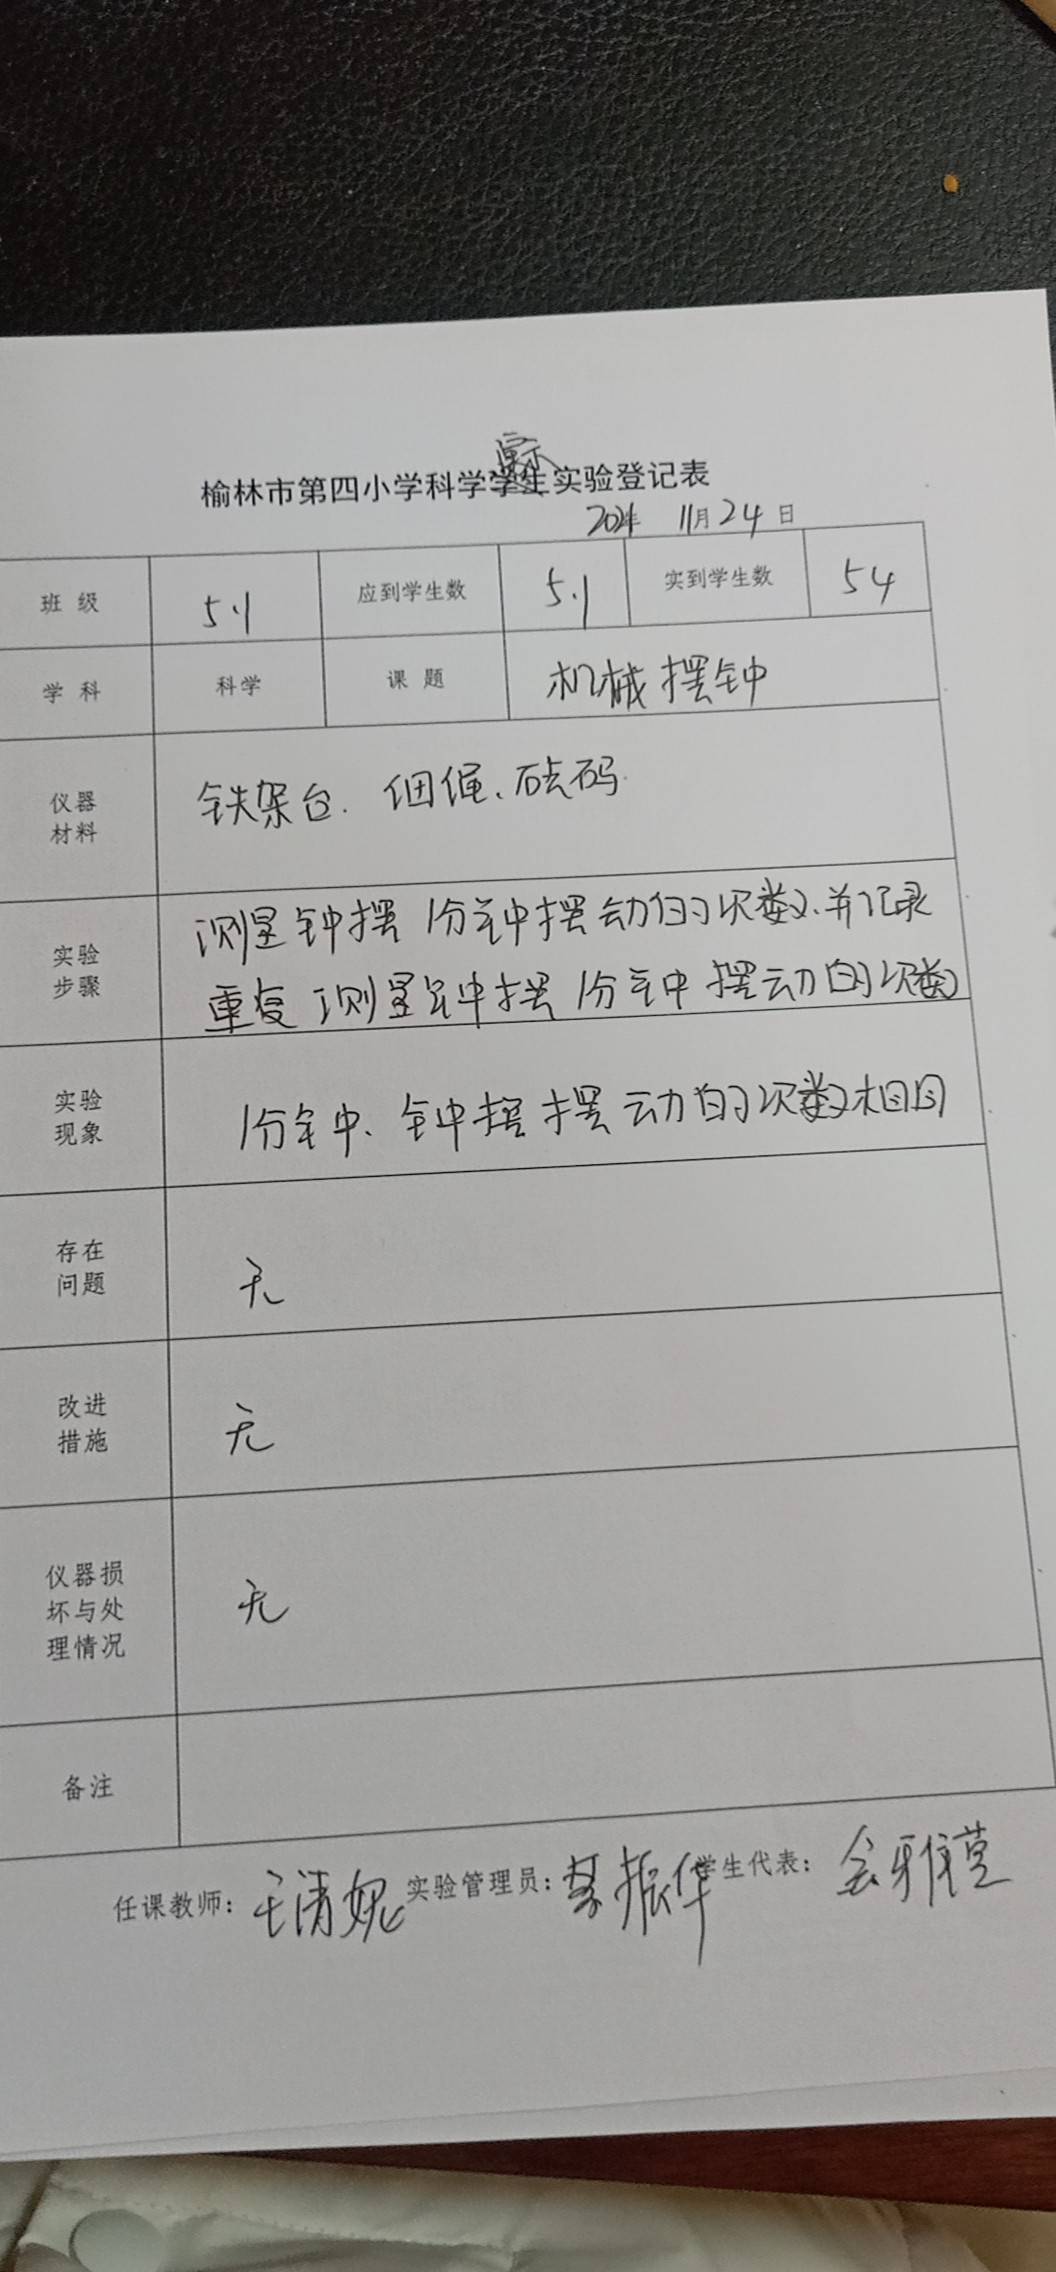 演示
榆林市第四小学科学学生实验登记表
2021年 11月24日
班 级 5.1 应到学生数 5.1 实到学生数 54
学 科 科学 课 题 机械摆钟
仪器
材料
铁架台. 细绳、砝码.
实验
步骤
测量钟摆1分钟摆动的次数.并记录
重复测量钟摆1分钟摆动的次数
实验
现象
1分钟、钟摆摆动的次数相同
存在
问题
无
改进
措施
无
仪器损
坏与处
理情况
无
备注
任课教师: 王清妮 实验管理员: 振华 学生代表: 雅